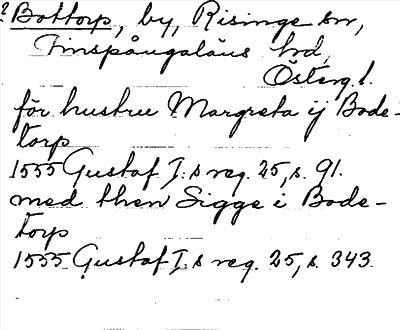 ? Bottorp, by, Risinge sn,
Finspångaläns hrd,
Österg. l.
för hustru Margreta ij Bode-
torp
1555 Gustaf I:s reg. 25, s. 91.
med then Sigge i Bode-
torp
1555 Gustaf I:s reg. 25, s. 343.